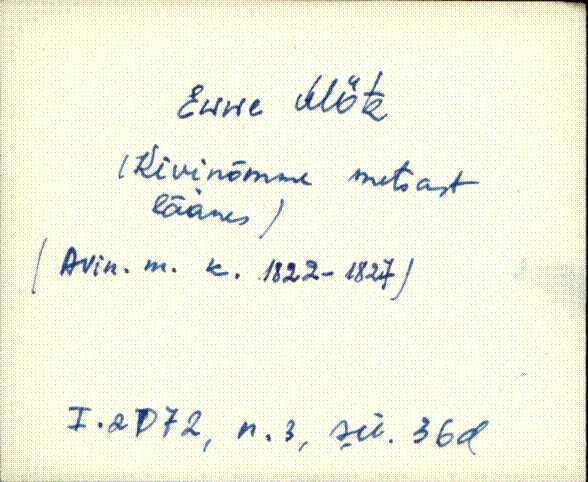 Ewwe Mötz
(Kivinõmme metsast
läänes)
(Avin. m. k. 1822-1827)
I.2D72, n.3, sü. 36d